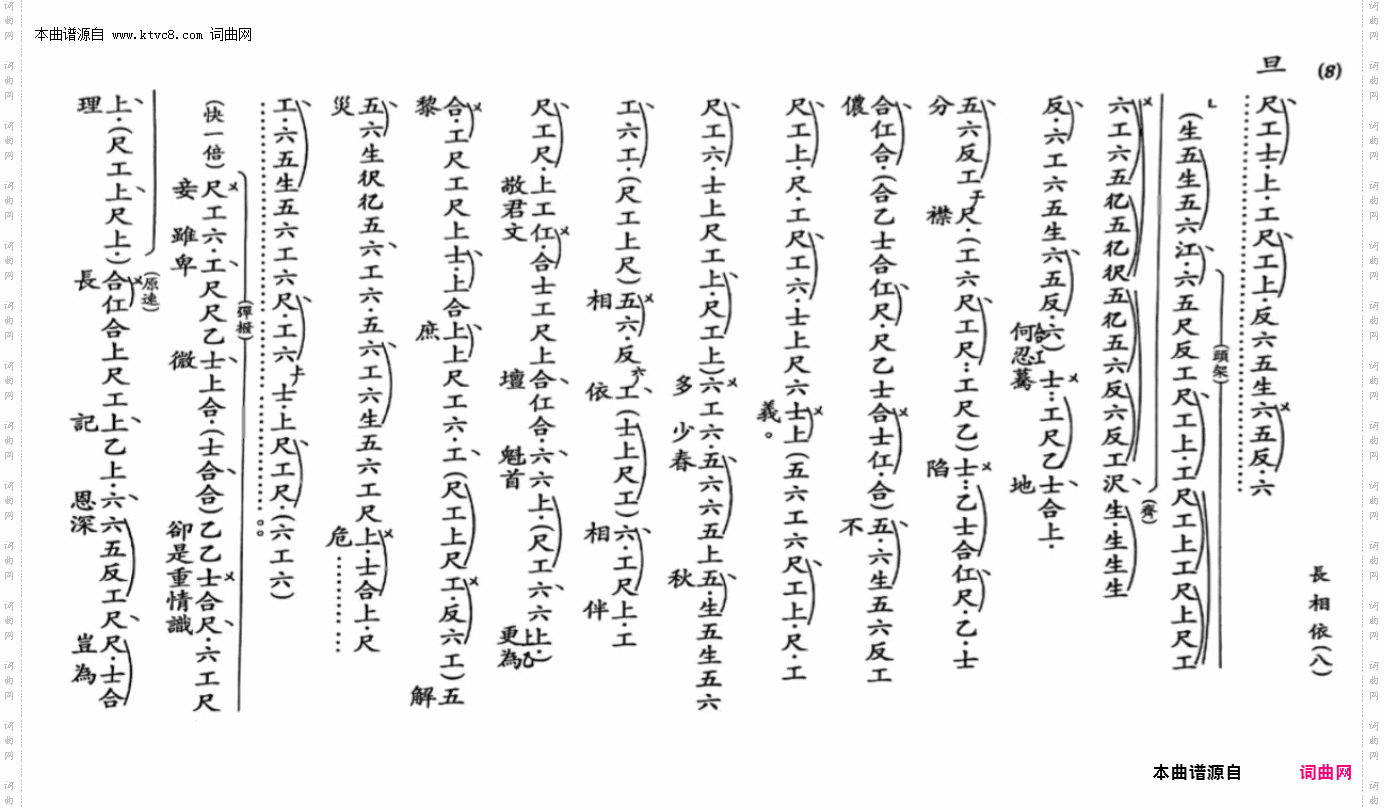 本曲谱源自 www.ktvc8.com 词曲网
(8)
長相依(八)
旦
尺工士·上·工尺工上·反六五生六五反·六
(頭架)
(生五生五六江·六五尺反工尺工上·工尺工上工尺上尺工
(齊)
六工六五亿五亿伬五亿五六反六反工沢生·生生生
反·六工六五生六五反·六)士··工尺乙士合上·
何忍驀 地
五六反工尺·(工六尺工尺··工尺乙)士··乙士合仜尺·乙·士
分 襟 陷
合仜合·(合乙士合仜尺·尺乙士合士仜·合)五·六生五六反工
儂 不
尺工上·尺·工尺工六·士上尺六士上(五六工六尺工上·尺·工
義。
尺工六·士上尺工上·尺工上)六工六·五六六五上五·生五生五六
多 少春 秋
工六工·(尺工上尺)五六·反工(士上尺工)六·工尺上·工
相 依 相 伴
尺工尺·上工仜·合士工尺上合仜合·六六上·(尺工六六上·)
敬君文 壇 魁首 更為
合·工尺工尺上士·上合上上尺工六·工(尺工上尺工·反六工)五
黎 庶 解
五六生伬亿五六工六·五六工六生五六工尺上·士合上·尺
災 危…………
工·六五生五六工六尺·工六士·上尺工尺·(六工六)
……………………。。
(彈撥)
(快一倍)尺工六·工尺尺乙士上合·(士合合)乙乙士合尺·六工尺
妾 雖卑 微 卻是重情識
(原速)
上·(尺工上尺上·)合仜合上尺工上乙上·六六五反工尺尺·士合
理 長 記 恩深 豈為
本曲谱源自 词曲网